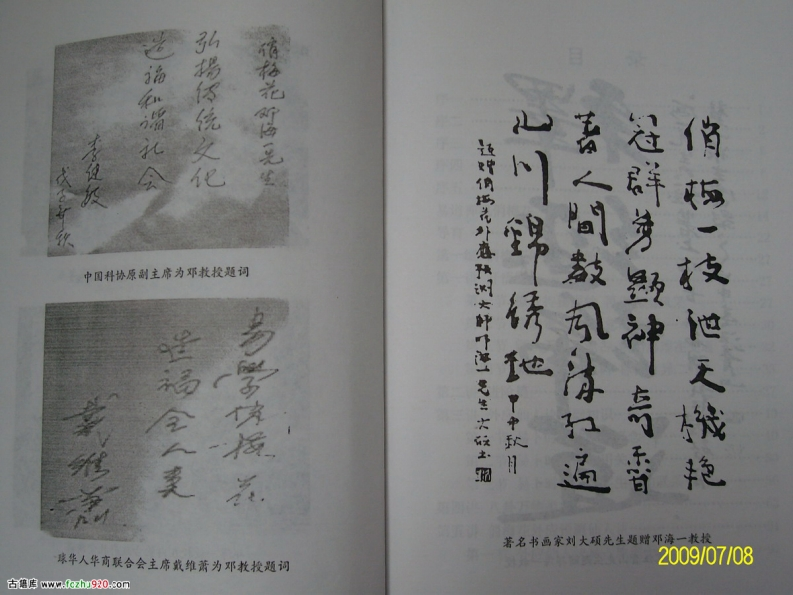 俏梅花邓海一先生
弘揚传统文化
造福和谐社会
戊子年秋
中国科协原副主席为邓教授题词
易学俏梅花
造福全人类
戴维萧
球华人华商联合会主席戴维萧为邓教授题词
俏梅一枝泄天機艳
冠群芳顯神奇
人間數風流红遍
九川錦绣地 甲申秋月
题赠俏梅花外應预测大师邓海一先生大硕书
著名书画家刘大硕先生题赠邓海一教授
2009/07/08
古籍库 www.fozhu920.com